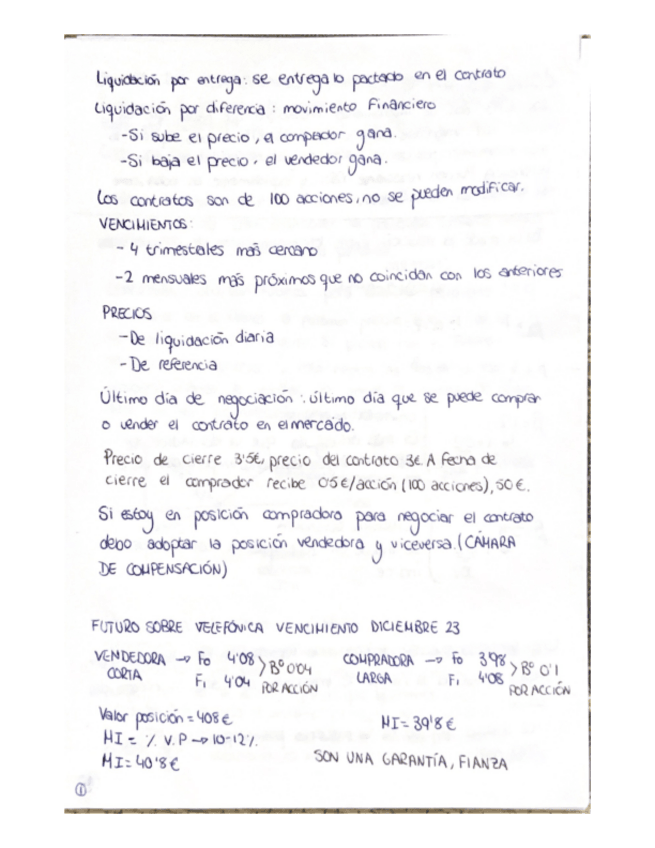 Liquidación por entrega: se entrega lo pactado en el contrato
Liquidación por diferencia: movimiento Financiero
-Si sube el precio, el comprador gana.
-Si baja el precio, el vendedor gana.
Los contratos son de 100 acciones, no se pueden modificar.
VENCIMIENTOS:
- 4 trimestrales más cercano
-2 mensuales más próximos que no coincidan con los anteriores
PRECIOS
-De liquidación diaria
-De referencia
Último día de negociación: último día que se puede comprar
o vender el contrato en el mercado.
Precio de cierre 3'5€, precio del contrato 3€. A fecha de
cierre el comprador recibe 0'5€/acción (100 acciones), 50€.
Si estoy en posición compradora para negociar el contrato
debo adoptar la posición vendedora y viceversa. (CÁMARA
DE COMPENSACIÓN)
FUTURO SOBRE TELEFÓNICA VENCIMIENTO DICIEMBRE 23
VENDEDORA → F0 4'08 > Bº 0'04 COMPRADORA → F0 3'98 > Bº 0'1
CORTA F1 4'04 POR ACCIÓN LARGA F1 4'08 POR ACCIÓN
Valor posición = 408€ MI = 39'8€
MI = % V.P → 10-12%
MI = 40'8€ SON UNA GARANTÍA, FIANZA
①